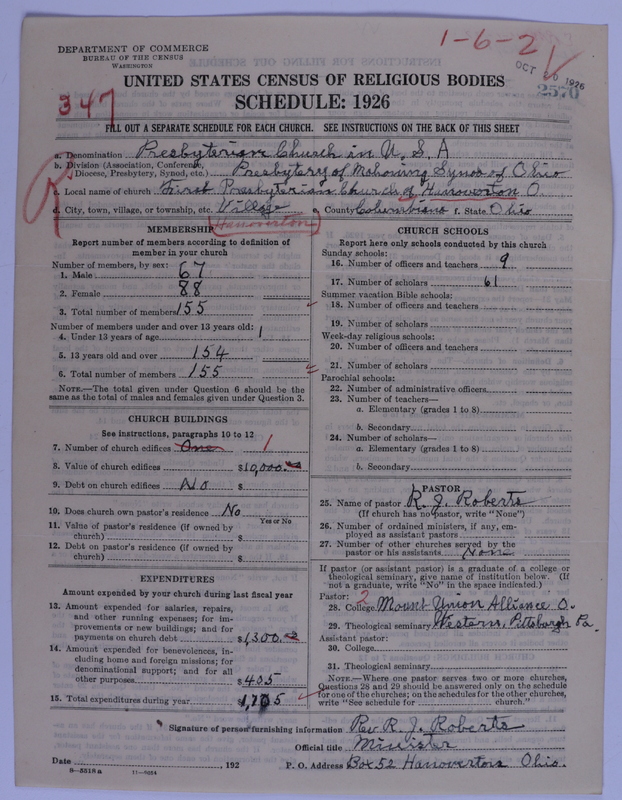 DEPARTMENT OF COMMERCE
BUREAU OF THE CENSUS
WASHINGTON
1-6-2
OCT 1926
2570
UNITED STATES CENSUS OF RELIGIOUS BODIES
SCHEDULE: 1926
347
FILL OUT A SEPARATE SCHEDULE FOR EACH CHURCH. SEE INSTRUCTIONS ON THE BACK OF THIS SHEET
a. Denomination Presbyterian Church in U. S. A
b. Division (Association, Conference, Diocese, Presbytery, Synod, etc.) Presbytery of Mahoning Synod of Ohio
c. Local name of church First Presbyterian Church of Hanoverton O.
d. City, town, village, or township, etc. Village County Columbiana f. State Ohio
Hanoverton
MEMBERSHIP
Report number of members according to definition of member in your church
Number of members, by sex:
1. Male 67
2. Female 88
3. Total number of members 155
Number of members under and over 13 years old:
4. Under 13 years of age 1
5. 13 years old and over 154
6. Total number of members 155
NOTE.—The total given under Question 6 should be the same as the total of males and females given under Question 3.
CHURCH BUILDINGS
See instructions, paragraphs 10 to 12
7. Number of church edifices One 1
8. Value of church edifices $10,000.
9. Debt on church edifices No $
10. Does church own pastor's residence No
Yes or No
11. Value of pastor's residence (if owned by church) $
12. Debt on pastor's residence (if owned by church) $
EXPENDITURES
Amount expended by your church during last fiscal year
13. Amount expended for salaries, repairs, and other running expenses; for improvements or new buildings; and for payments on church debt $1,300.
14. Amount expended for benevolences, including home and foreign missions; for denominational support; and for all other purposes $405
15. Total expenditures during year $1,705
CHURCH SCHOOLS
Report here only schools conducted by this church
Sunday schools:
16. Number of officers and teachers 9
17. Number of scholars 61
Summer vacation Bible schools:
18. Number of officers and teachers
19. Number of scholars
Week-day religious schools:
20. Number of officers and teachers
21. Number of scholars
Parochial schools:
22. Number of administrative officers
23. Number of teachers—
a. Elementary (grades 1 to 8)
b. Secondary
24. Number of scholars—
a. Elementary (grades 1 to 8)
b. Secondary
PASTOR
25. Name of pastor R. J. Roberts
(If church has no pastor, write "None")
26. Number of ordained ministers, if any, employed as assistant pastors
27. Number of other churches served by the pastor or his assistants None
If pastor (or assistant pastor) is a graduate of a college or theological seminary, give name of institution below. (If not a graduate, write "No" in the space indicated.)
Pastor: 2
28. College Mount Union Alliance O.
29. Theological seminary Western, Pittsburgh Pa.
Assistant pastor:
30. College
31. Theological seminary
NOTE.—Where one pastor serves two or more churches, Questions 28 and 29 should be answered only on the schedule for one of the churches; on the schedules for the other churches, write "See schedule for church."
Signature of person furnishing information Rev. R. J. Roberts
Official title Minister
Date , 192 P. O. Address Box 52 Hanoverton Ohio.
8—5518 a 11—9054